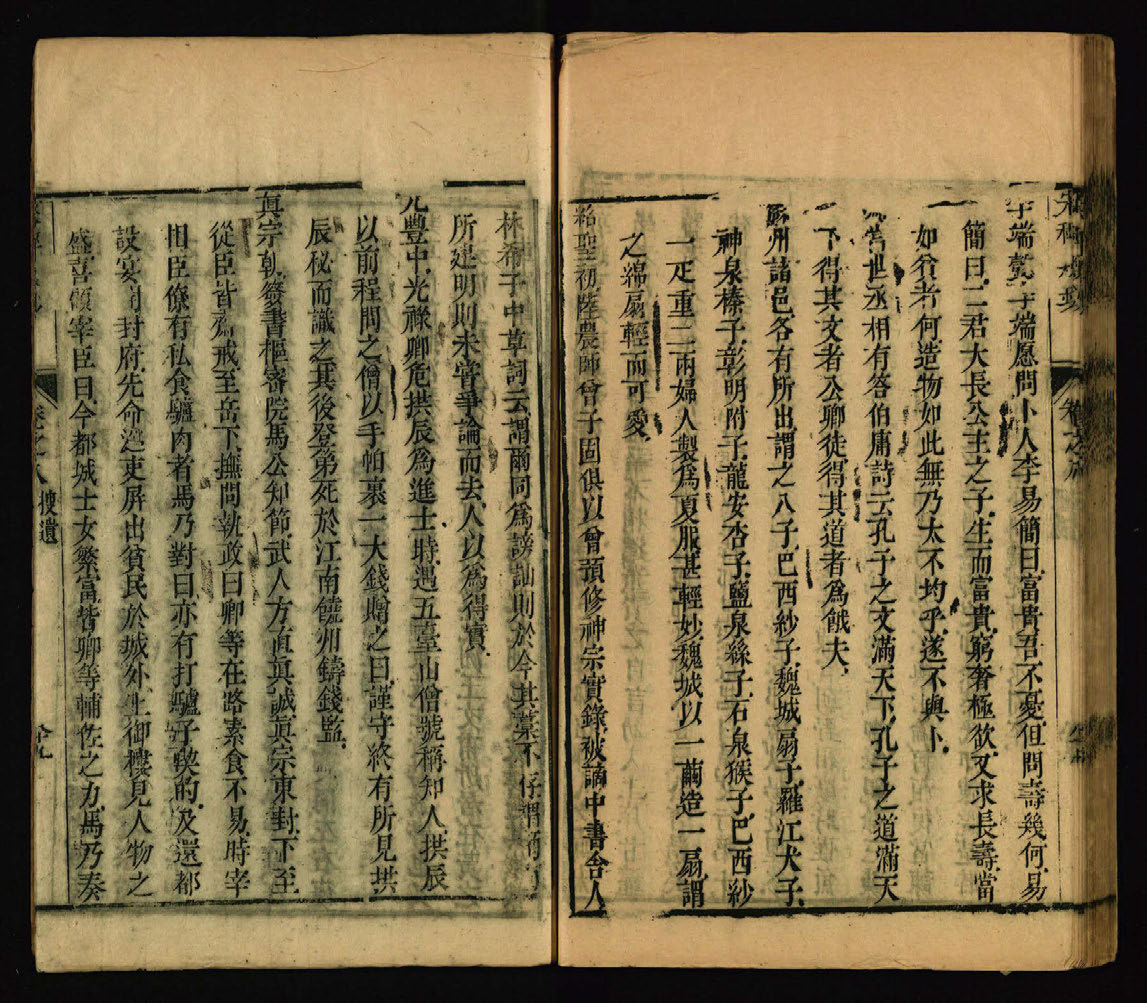 宋稗類鈔 卷之八
于端懿于端愿問卜人李易簡曰富貴吾不憂但問壽幾何易
簡曰二君大長公主之子生而富貴窮奢極欲又求長壽當
如貧者何造物如此無乃太不均乎遂不與卜
當世丞相有答伯庸詩云孔子之文滿天下孔子之道滿天
下得其文者公卿徒得其道者為餓夫
州諸邑各有所出謂之八子巴西紗子魏城扇子羅江犬子
神泉榛子彰明附子龍安杏子鹽泉絲子石泉猴子巴西紗
一疋重二兩婦人製為夏服甚輕妙魏城以一繭造一扇謂
之綿扇輕而可愛
紹聖初陸農師曾子固俱以曾預修神宗實錄被謫中書舍人
林希子中草詞云謂爾同為謗訕則於今其藁不存謂爾
所建明則未嘗爭論而去人以為得實
元豐中光祿卿危拱辰為進士時遇五臺山僧號稱知人拱辰
以前程問之僧以手帕裹一大錢贈之曰謹守終有所見拱
辰秘而識之其後登第死於江南饒州鑄錢監
真宗朝簽書樞密院馬公知節武人方直真誠真宗東封下至
從臣皆齋戒至岳下撫問執政曰卿等在路素食不易時宰
相臣僚有私食驢肉者馬乃對曰亦有打驢子喫的及還都
設宴開封府先命巡吏屏出貧民於城外上御樓見人物之
盛喜顧宰臣曰今都城士女繁富皆卿等輔佐之力馬乃奏
卷之八 搜遺